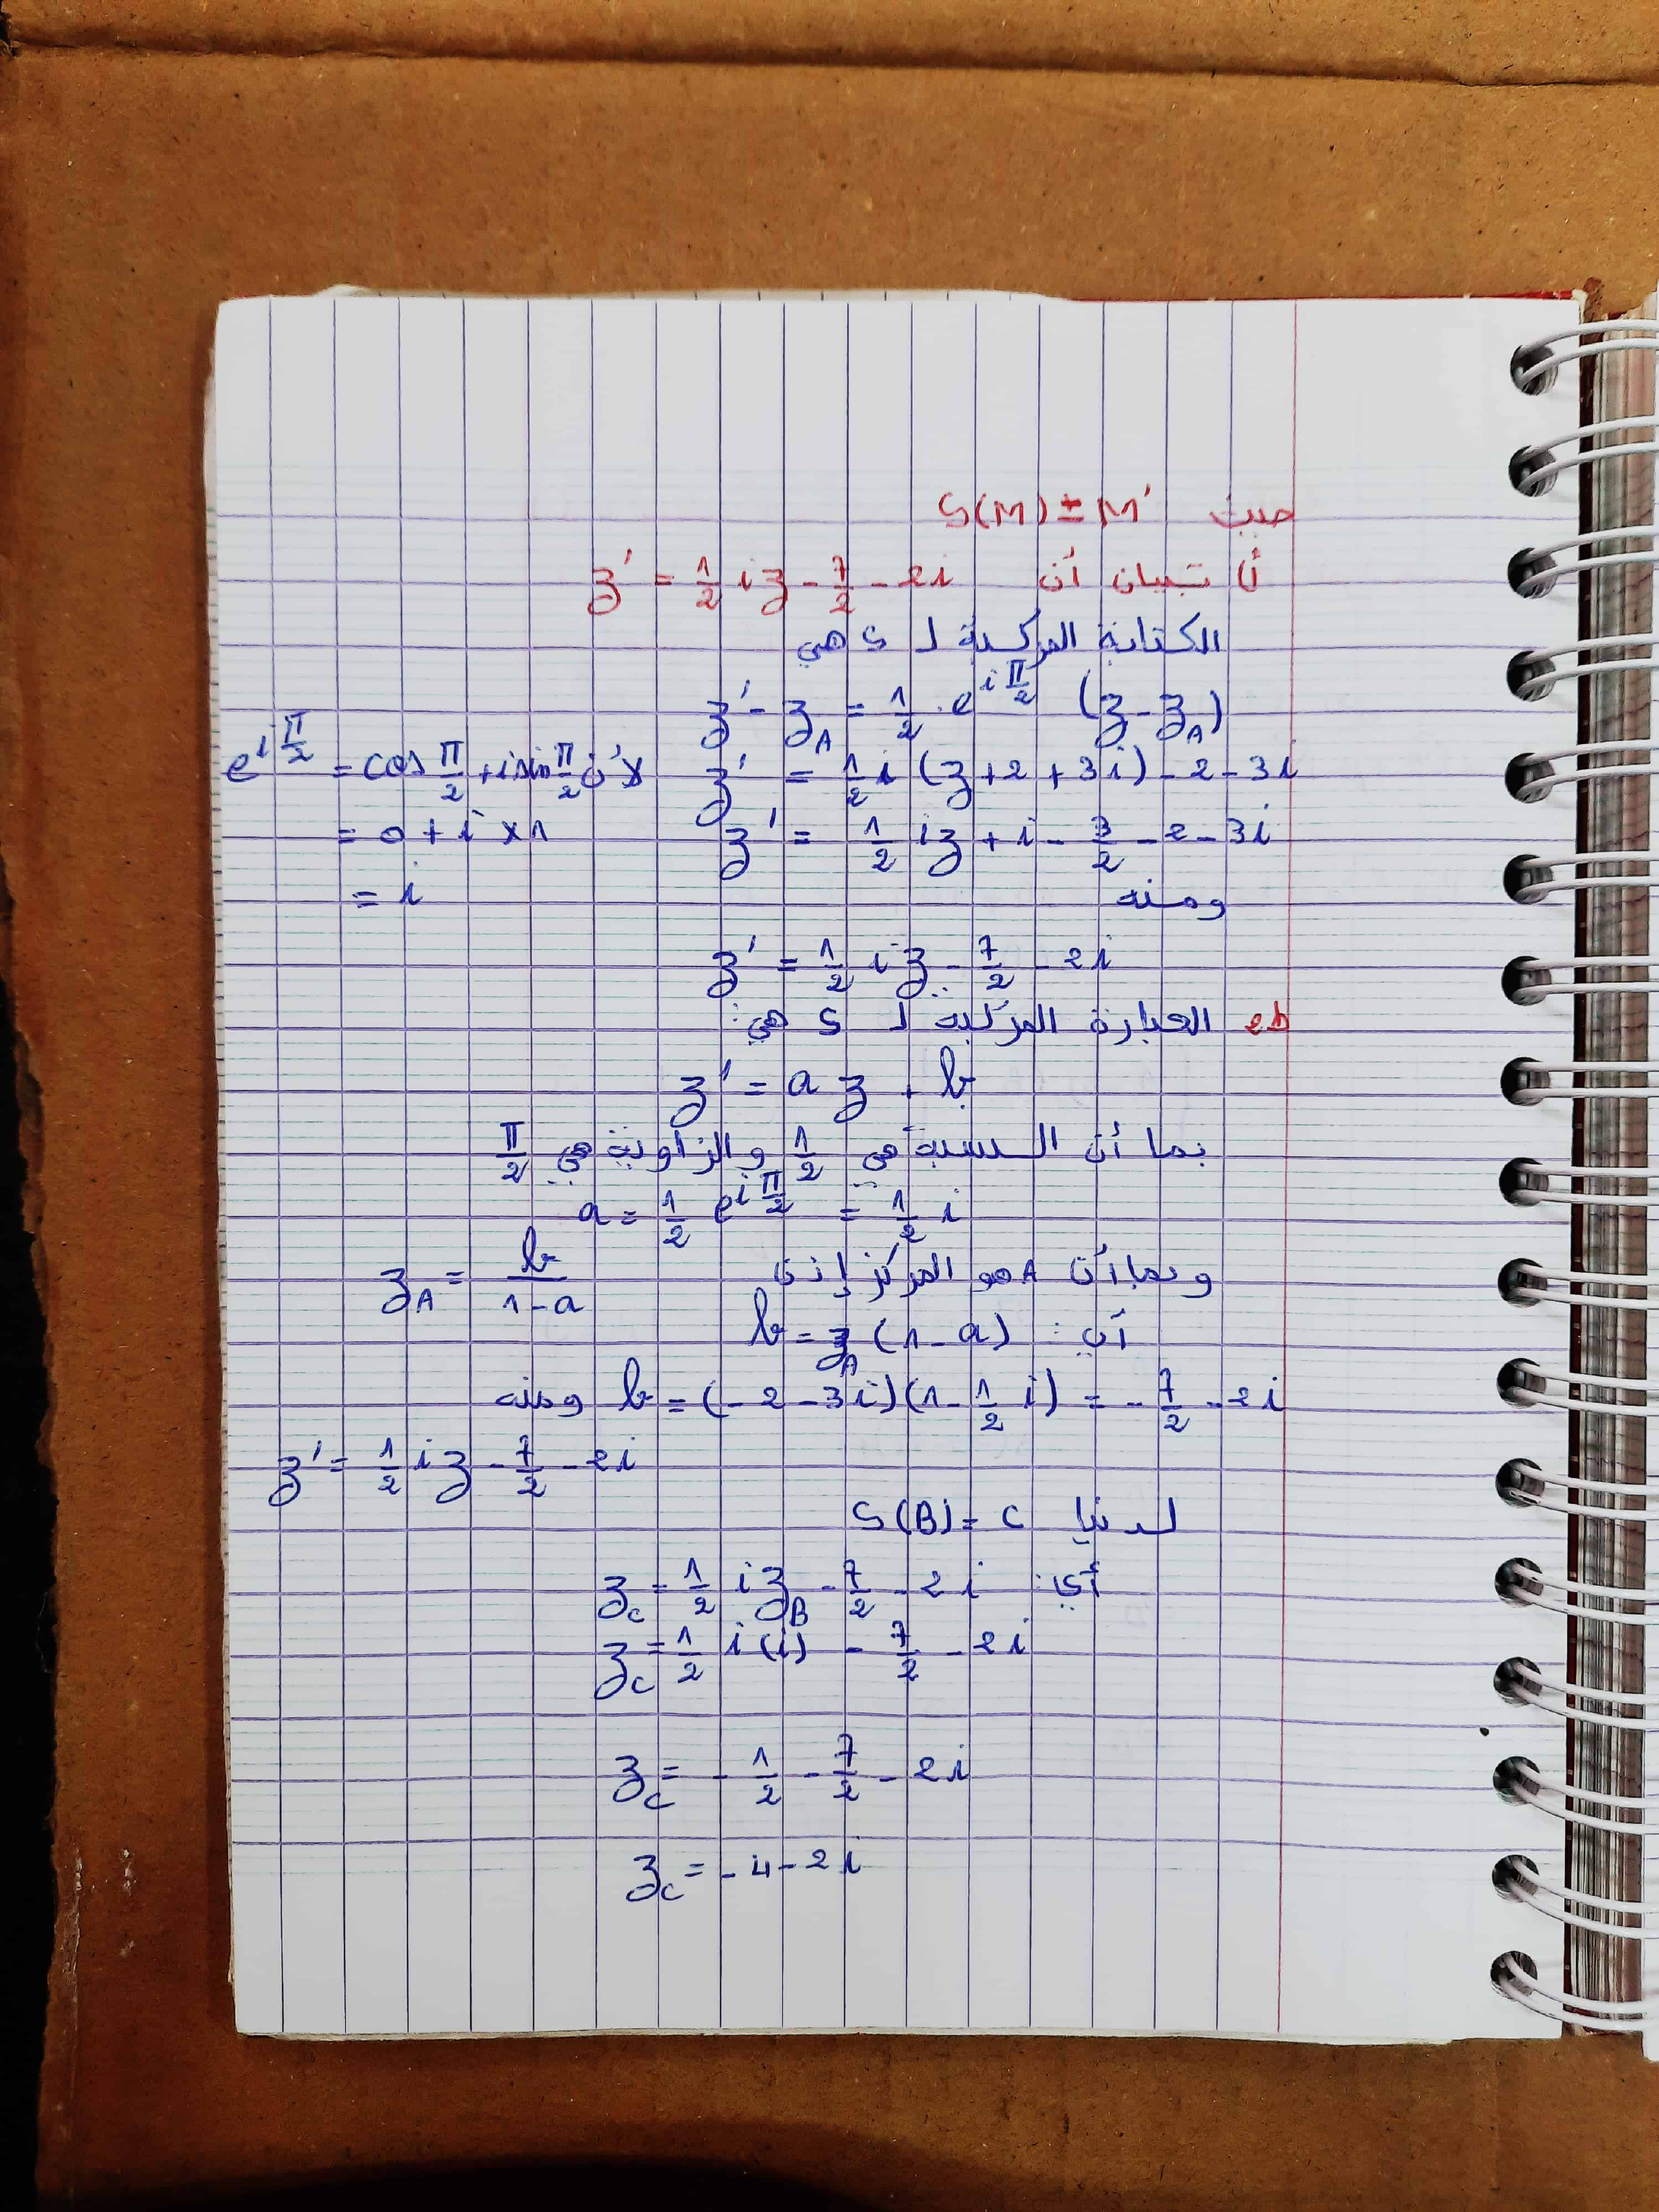 حيث S(M) = M'
أ) تبيان أن z' = 1/2 iz - 7/2 - 2i
الكتابة المركبة لـ S هي
z' - z_A = 1/2 . e^(iπ/2) (z - z_A)
z' = 1/2 i (z + 2 + 3i) - 2 - 3i لأن e^(iπ/2) = cos π/2 + i sin π/2
z' = 1/2 iz + i - 3/2 - 2 - 3i = 0 + i × 1
ومنه = i
z' = 1/2 iz - 7/2 - 2i
العبارة المركبة لـ S هي:
z' = a z + b
بما أن النسبة هي 1/2 و الزاوية هي π/2
a = 1/2 e^(iπ/2) = 1/2 i
وبما أن A هو المركز إذن z_A = b/(1-a)
أي: b = z_A (1 - a)
b = (-2 - 3i)(1 - 1/2 i) = -7/2 - 2i ومنه
z' = 1/2 iz - 7/2 - 2i
لدينا S(B) = C
أي: z_C = 1/2 i z_B - 7/2 - 2i
z_C = 1/2 i(i) - 7/2 - 2i
z_C = -1/2 - 7/2 - 2i
z_C = -4 - 2i